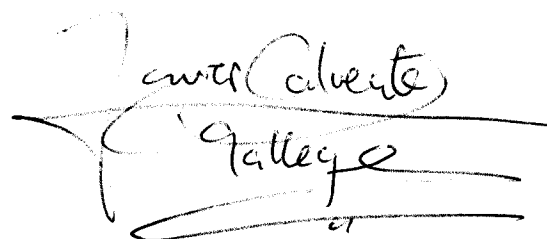 Javier Calvente
Gallego